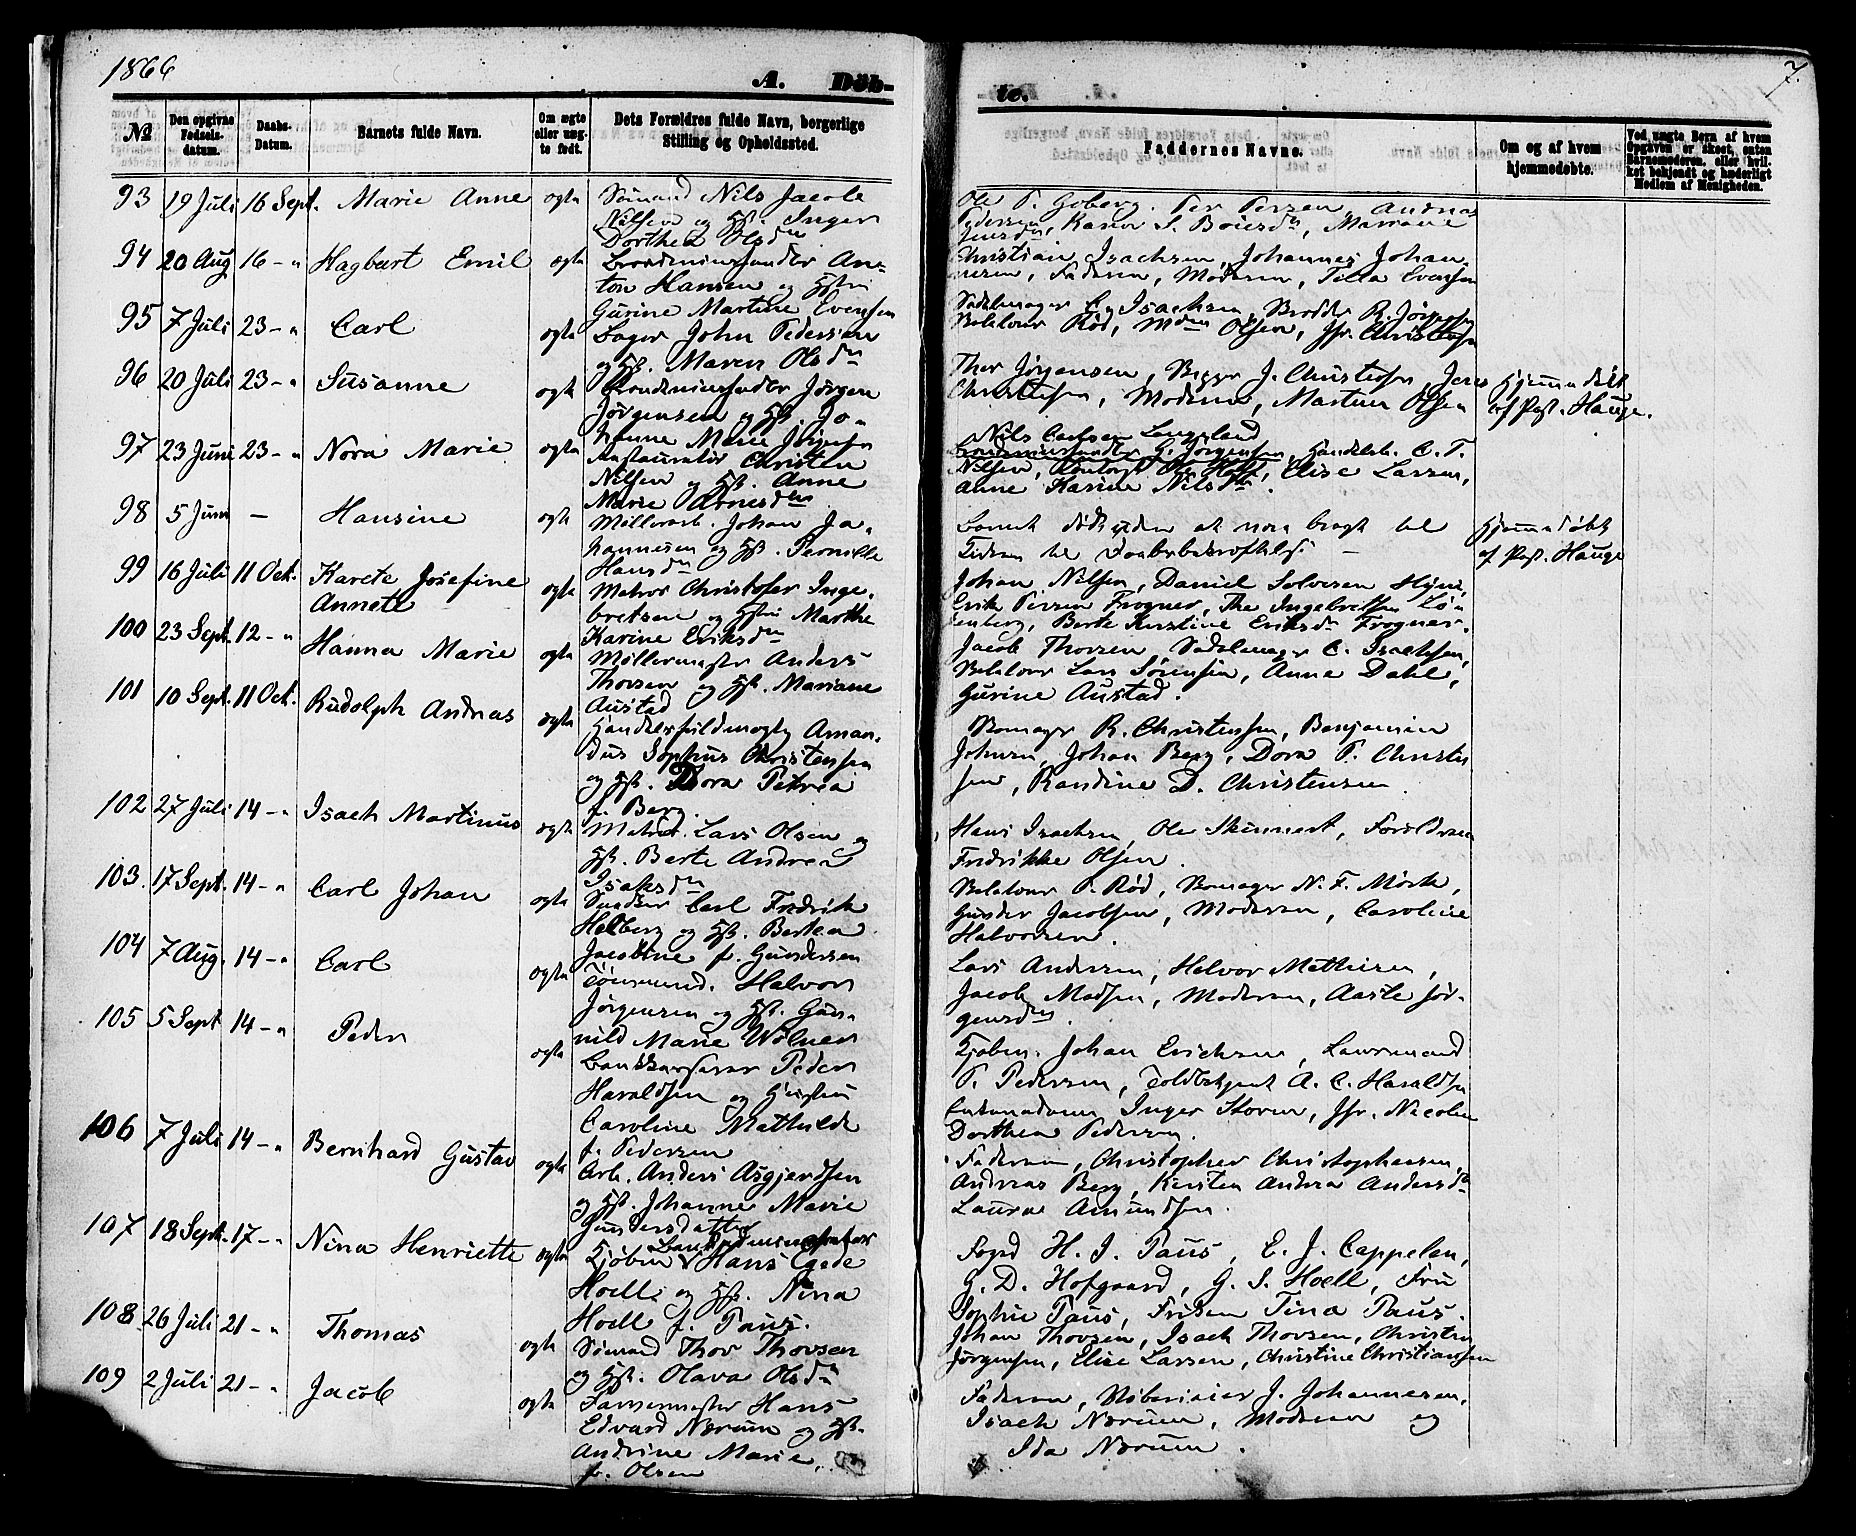 1866
A. Döb-
te.
7.
№
Den opgivne Fødsels-datum.
Daabs-Datum.
Barnets fulde Navn.
Om ægte eller uægte født.
Dets Forældres fulde Navn, borgerlige Stilling og Opholdssted.
Faddernes Navne.
Om og af hvem hjemmedøbte.
Ved uægte Børn af hvem Opgaven er skeet, enten Barnemoderen, eller hvilket bekjendt og hæderligt Medlem af Menigheden.
93 19 Juli 16 Sept. Marie Anne ægte
Sømand Nils Jacob
Nilsen og Hst. Inger
Dorthea Olsdtr
Ole T. Goberg. Per Persen, Andreas
Pedersen, Karen S. Boiesdtr, Mariane
Jensdtr
94 20 Aug 16 - " Hagbart Emil ægte
Brændevinshandler An-
ton Hansen og Hstru
Gurine Martine Evensen
Christian Isachsen, Johannes Johan-
nesen, Faderen, Moderen, Tilla Evensen
95 7 Juli 23 - " Carl ægte
Bager John Pedersen
og Hst. Maren Olsdtr
Sadelmager C. Isachsen, Brodder R. Jørgensen
Beletour Rød, Mdm Olsen, Jfr. Christensen
96 20 Juli 23 - " Susanne ægte
Brændevinshandler Jørgen
Jørgensen og Hst. Jo-
hanne Marie Jørgensen
Thor Jørgensen, Bygger J. Christensen, Jens
Christensen, Moderen, Martine Olsen
Hjemmedøbt
af Past. Hauge.
97 23 Juni 23 - " Nora Marie ægte
Restauratør Christen
Nilsen og Hst. Anne
Marie Arnesdtr
Nils Carlsen Langeland
Brændevinshandler G. Jørgensen, Handelsb. C. T.
Nilsen, Ole Holt, Elise Larsen,
Anne Karine Nilsdtr.
98 5 Juni — Hansine ægte
Møllerarb. Johan Jo-
hannesen og Hst. Pernille
Hansdtr
Barnet døde uden at være bragt til
Kirken til Daabsbekræftelse —
Hjemmedøbt
af Past. Hauge
99 16 Juli 11 Oct. Karete Josefine
Annete ægte
Matros Christofer Inge-
bretsen og Hstru Marthe
Karine Eriksdtr
Johan Nilsen, Daniel Solvesen
Erik Persen Frogner, Thr Ingebretsen Lø-
enberg, Berte Kirstine Eriksdr Frogner.
100 23 Sept. 12 - " Hanna Marie ægte
Møllermester Anders
Thorsen og Hst. Mariane
Austad
Jacob Thorsen, Sadelmager C. Isachsen,
Beletour Lars Sørensen, Anne Dahl,
Gurine Austad.
101 10 Sept. 11 Oct. Rudolph Andreas ægte
Handelsfuldmægtig Aman-
dus Sophus Christensen
og Hst. Dora Petrea
f. Berg
Bomager R. Christensen, Benjamin
Johnsen, Johan Berg, Dora P. Christen
sen, Randine D. Christensen.
102 27 Juli 14 - " Isach Martinus ægte
Matros Lars Olsen og
Hst. Berte Andrea
Isaksdtr
Hans Isachsen, Ole Skinnert, Forældrene
Fredrikke Olsen.
103. 17 Sept. 14 - " Carl Johan ægte
Snedker Carl Fredrik
Helberg og Hst. Berthea
Jacobine f. Gundersen
Beletour P. Rød, Bomager N. F. Mørk,
Gunder Jacobsen, Moderen, Caroline
Halvorsen.
104 7 Aug. 14 - " Carl ægte
Tømmerm. Halvor
Jørgensen og Hst. Gun-
nild Marie Wølner
Lars Andersen, Halvor Mathisen,
Jacob Madsen, Moderen, Aaste Jør-
gensdtr.
105 5 Sept 14 - " Peder ægte
Bankkasserer Peder
Haraldsen og Hustru
Caroline Mathilde
f. Pedersen
Kjøbm. Johan Erichsen, Lawrmand
P. Pedersen, Toldbetjent A. C. Haraldsen
Inger Storm, Jfr. Nicoline
Dorthea Pedersen.
106 7 Juli 14 - " Bernhard Gustav ægte
Arb. Anders Asgjerdsen
og Hst. Johanne Marie
Gundersdatter
Faderen, Christopher Christophersen,
Andreas Berg, Kirsten Andrea Andersdr
Laura Amundsen.
107 18 Sept. 17 - " Nina Henriette ægte
Bankadministrator
Kjøbm. v Hans Egede
Hoell og Hst. Nina
Hoell f. Paus.
Foged H. J. Paus, E. J. Cappelen,
G. D. Hofgaard, G. S. Hoell, Fru
Sophie Paus, Frøken Tina Paus.
108 26 Juli 21 - " Thomas ægte
Sømand Thor Thorsen
og Hst. Olava Olsdtr
Johan Thorsen, Isach Thorsen, Christen
Jørgensen, Elise Larsen, Christine Christiansen
109 2 Juli 21 - " Jacob ægte
Garvermester Hans
Edvard Nærum og Hst.
Andrine Marie
f. Olsen
Faderen, J. Johannesen,
Isach Nærum, Moderen og
Ida Nærum.